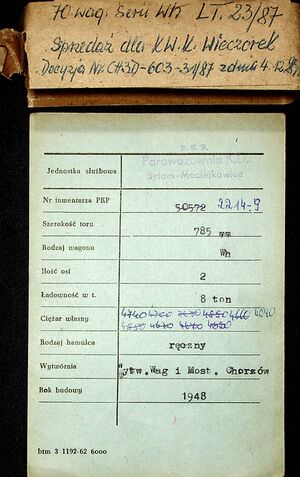 70 wag. Serii Wh LT. 23/87
Sprzedaż dla K.W.K. Wieczorek
Decyzja Nr CH3D-603-31/87 z dnia 4.12.87
P.K.P.
Parowozownia K.D.
Bytom-Maciejkowice
Jednostka służbowa
Nr inwentarza PKP 50572 2214-9
Szerokość toru 785 mm
Rodzaj wagonu Wh
Ilość osi 2
Ładowność w t. 8 ton
Ciężar własny 4740 4700 4850 4660 4040
4670
Rodzaj hamulca ręczny
Wytwórnia Wytw.Wag i Most. Chorzów
Rok budowy 1948
btm 3 1192-62 6000